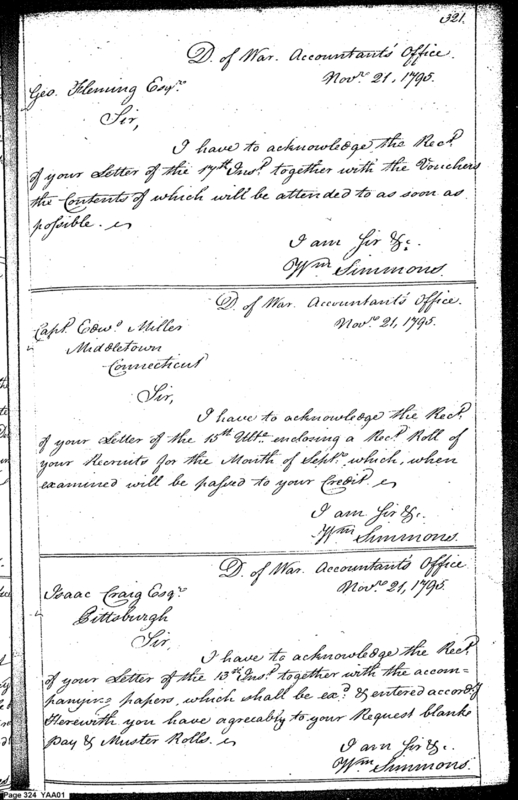 321.
D. of War. Accountant's Office.
Novr. 21, 1795.
Geo. Fleming Esqr.
Sir,
I have to acknowledge the Recd.
of your Letter of the 17th Inst. together with the Vouchers
the Contents of which will be attended to as soon as
possible.
I am Sir &c.
Wm. Simmons.
D. of War. Accountant's Office.
Novr. 21, 1795.
Capt. Edwd. Miller
Middletown
Connecticut
Sir,
I have to acknowledge the Recd.
of your Letter of the 15th Ulto. enclosing a Recd. Roll of
your Recruits for the Month of Septr. which, when
examined will be passed to your Credit
I am Sir &c.
Wm. Simmons.
D. of War. Accountant's Office
Novr. 21, 1795.
Isaac Craig Esqr.
Pittsburgh
Sir,
I have to acknowledge the Recd.
of your Letter of the 13th Inst. together with the accom-
panying papers, which shall be exd. & entered accordg.
Herewith you have agreeably to your Request blank
Pay & Muster Rolls.
I am Sir &c.
Wm. Simmons.
Page 324 YAA01